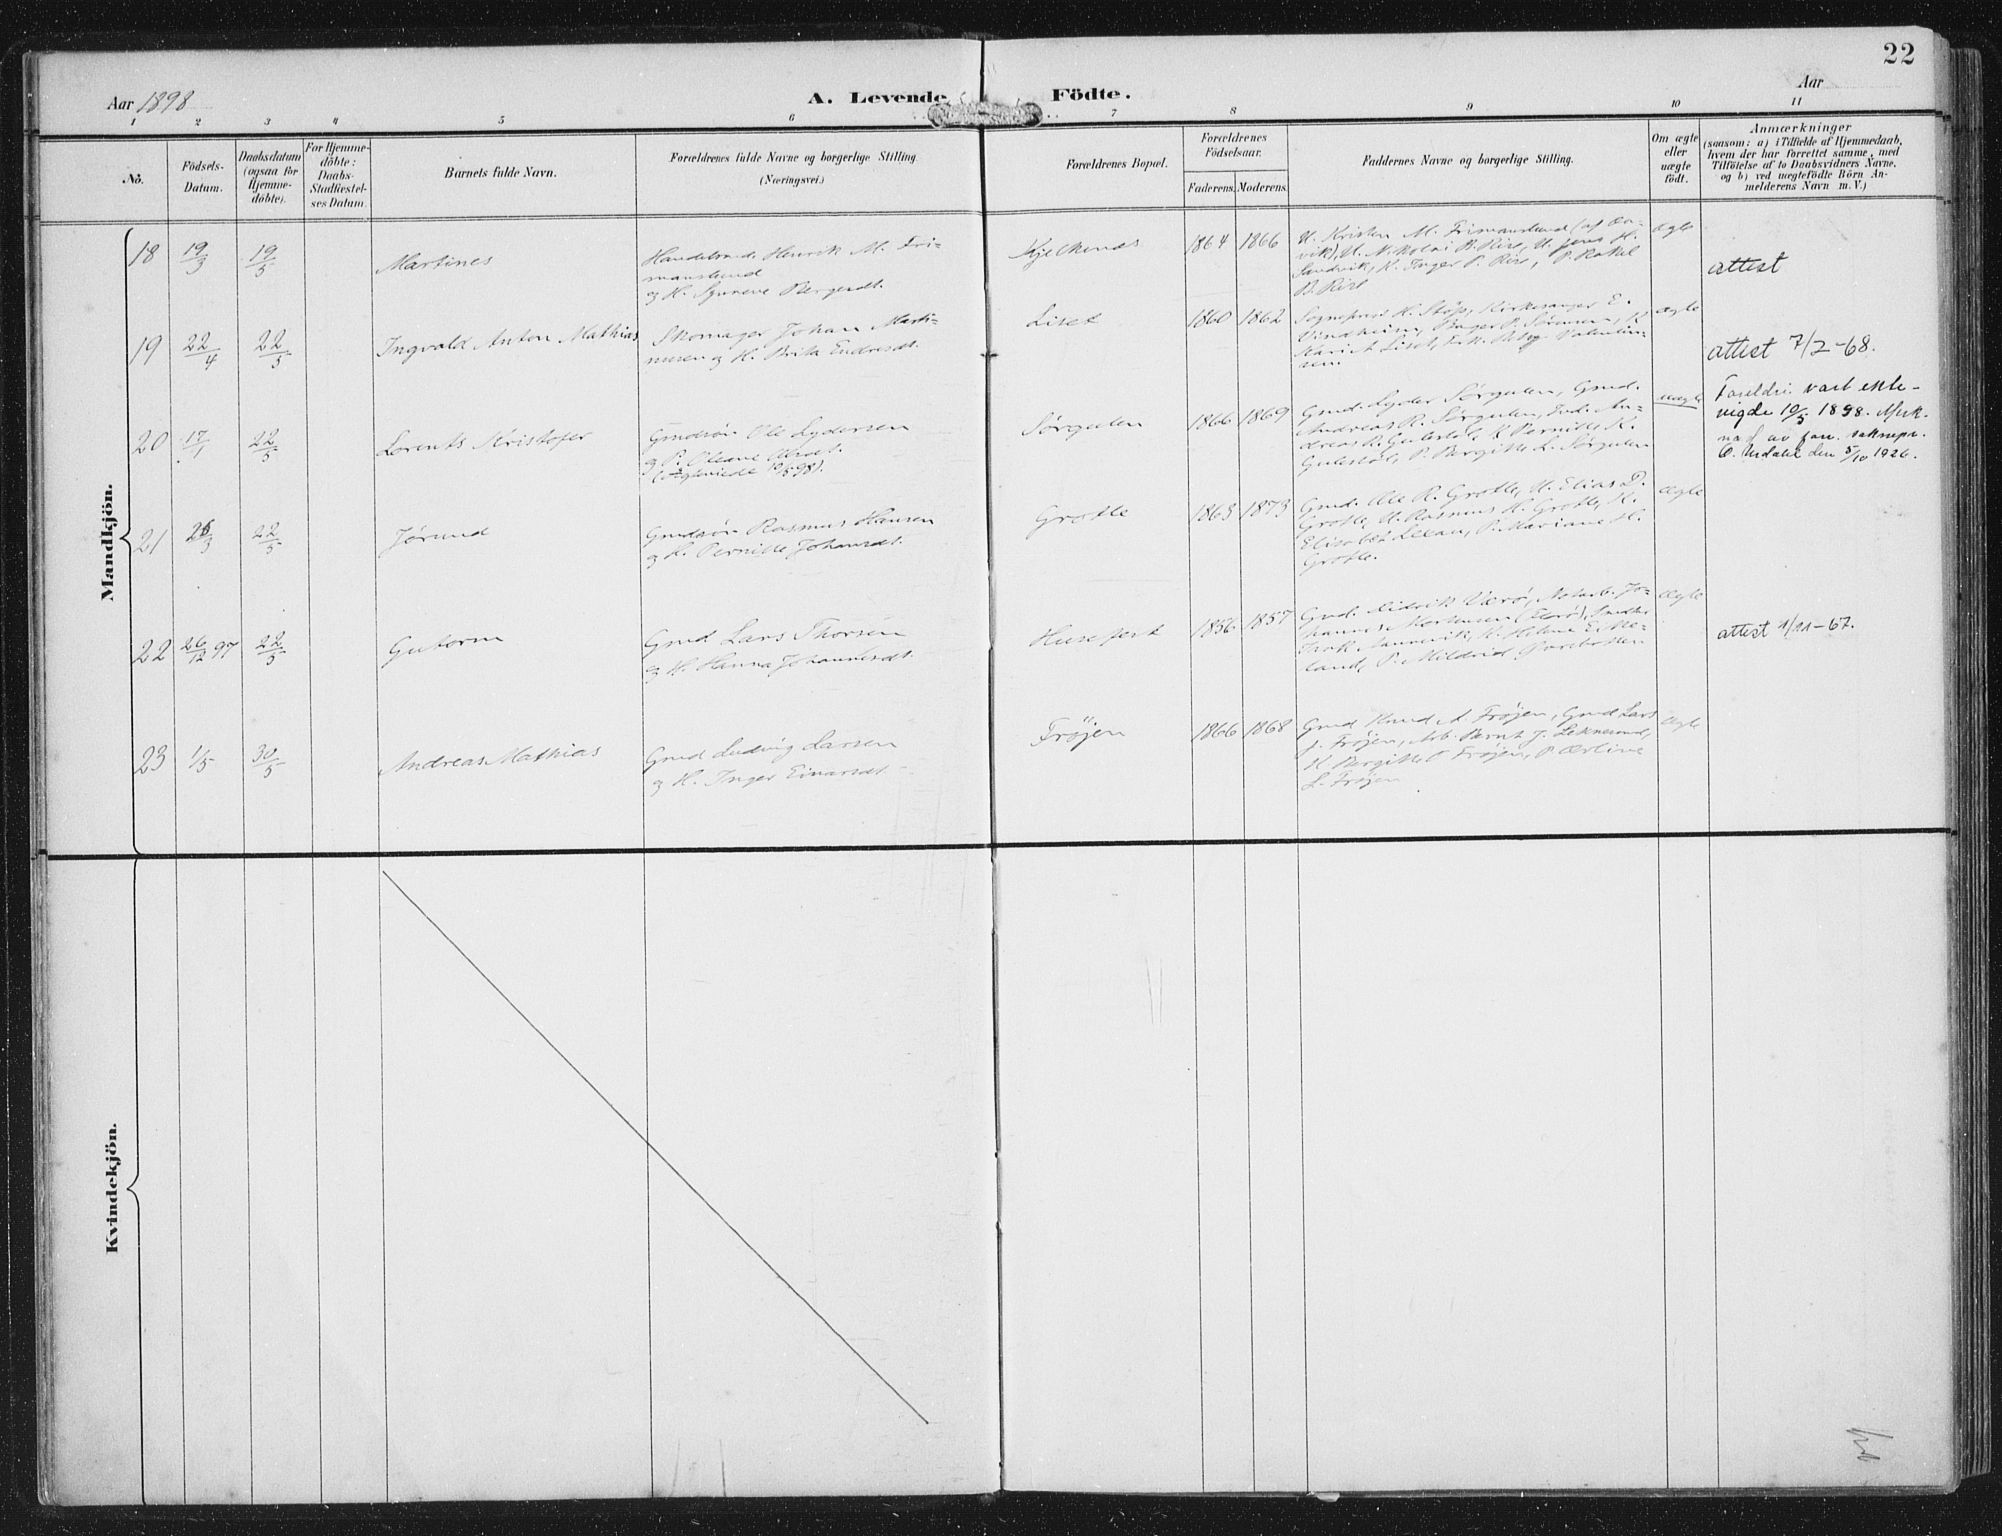 22
Aar 1898
A. Levende Födte.
Aar
1 2 3 4 5 6 7 8 9 10 11
No.
Födsels-
Datum.
Daabsdatum
(ogsaa for
Hjemme-
döbte).
For Hjemme-
döbte:
Daabs-
Stadfæstel-
ses Datum.
Barnets fulde Navn.
Forældrenes fulde Navne og borgerlige Stilling.
(Næringsvei.)
Forældrenes Bopæl.
Forældrenes
Födselsaar.
Faderens. Moderens.
Faddernes Navne og borgerlige Stilling.
Om ægte
eller
uægte
født.
Anmærkninger
(saasom: a) i Tilfælde af Hjemmedaab,
hvem der har forrettet samme, med
Tilföielse af to Daabsvidners Navne,
og b) ved uægtefödte Börn An-
melderens Navn m. V.)
Mandkjön.
18 19/3 19/5 Martines
Handelsmd. Henrik M. Fri-
manslund
og H. Synneve Bergesdt.
Kjelkenes 1864 1866
U. Kristen M. Frimanslund
Sandvik, K. Inger P. Risé, P. Rakel
B. Risé
ægte
attest
19 22/4 22/5 Ingvald Anton Mathias
Skomager Johan Marti-
nusen og H. Brita Endresdt.
Liset 1860 1862
Sogneprest H. Støp, Kirkesanger E.
Vindheim, Bager P. Sørensen, K.
Kari A. Liset,
ægte
attest 7/2-68.
20 17/1 22/5 Lorents Kristofer
Gmdsøn Ole Lydersen
og P. Oleave Absdt.
(ægteviede 10/5 98).
Sørgulen 1866 1869
Gmd. Lyder Sørgulen, Gmd.
Andreas R. Sørgulen, Ind. An-
dreas R. Gulestøl, K. Pernille K.
Gulestøl, P. Bergitte L. Sørgulen
uægte
Foreldri vart ekte-
vigde 10/5 1898. Merk-
nad av fon. soknepr.
O. Urdahl den 5/10 1926.
21 26/3 22/5 Jørund
Gmdsøn Rasmus Hansen
og H. Pernille Johansdt.
Grotle 1863 1873
Gmd. Ole R. Grotle, U. Elias D.
Grotle, U. Rasmus H. Grotle, K.
Elisabet Leean, P. Mariane H.
Grotle.
ægte
22 26/12 97 22/5 Gutorm
Gmd Lars Thorsen
og H. Hanna Johannesdt.
Husefest 1856 1857
Gmd. Didrik Værø, Notarb. Jo-
hannes Mortensen
Isak Hannevik, K. Helene Eike-
land, P. Mildrid
ægte
attest 1/11-67.
23 1/5 30/5 Andreas Mathias
Gmd Ludvig Larsen
og H. Inger Einarsdt
Frøjen 1866 1868
Gmd Knud A. Frøjen, Gmd Lars
J. Frøjen, Arb. Bernt J. Leknesund,
K Bergitte E Frøjen, P. Ærline
L. Frøjen
ægte
Kvindekjön.